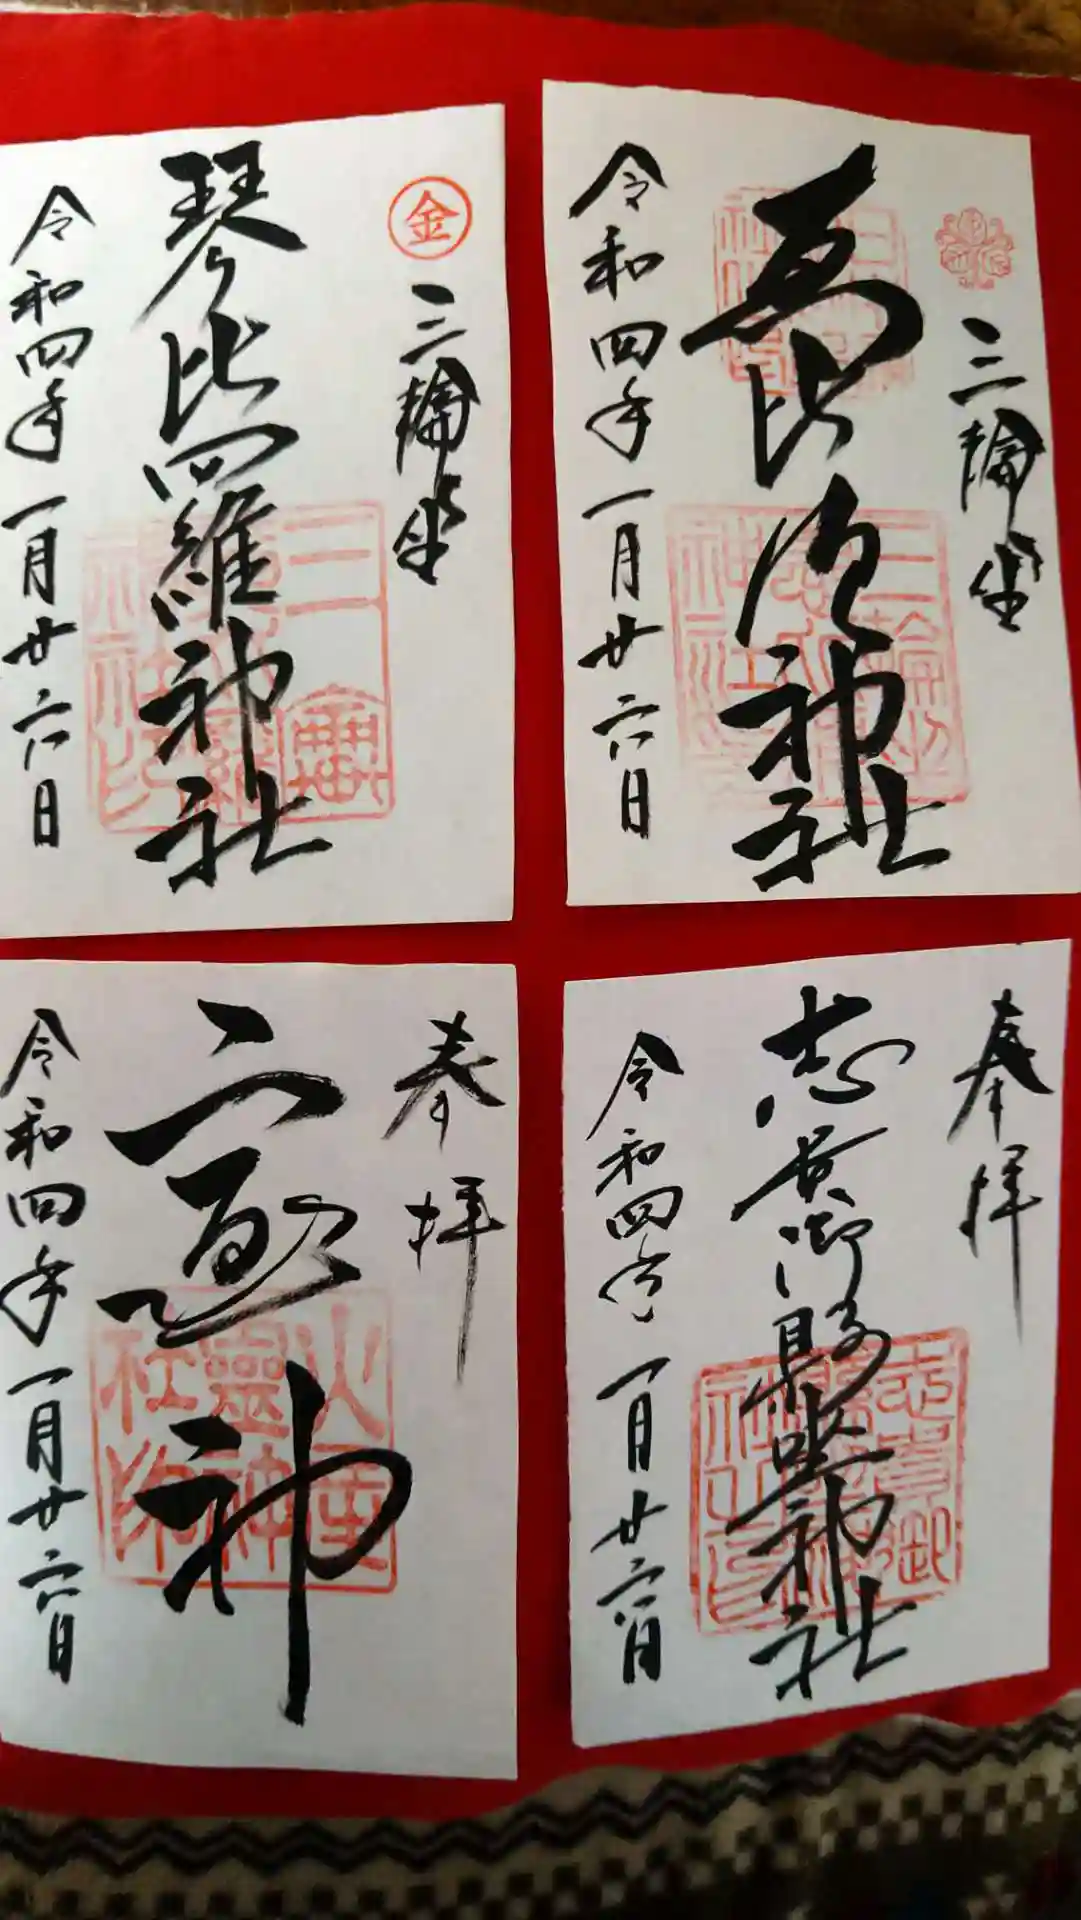 三輪坐
恵比須神社
令和四年一月廿六日
金
三輪坐
琴比羅神社
令和四年一月廿六日
奉拝
志貴御縣坐神社
志貴御
令和四年一月廿六日
奉拝
神
火産
靈神
社印
令和四年一月廿六日